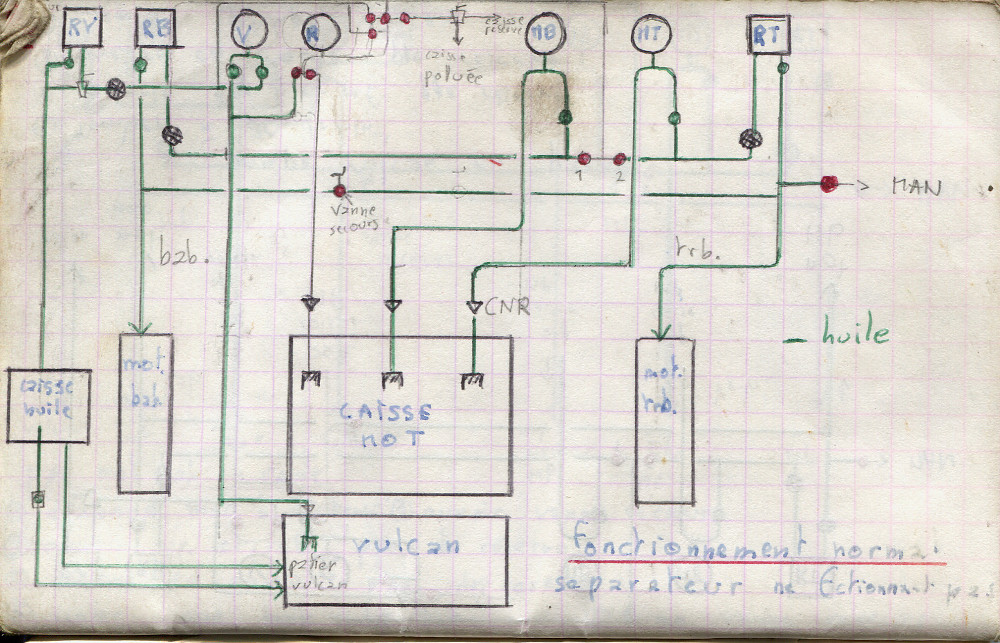 RV
RB
V
R
MB
MT
RT
caisse
réserve
caisse
polluée
1
2
MAN
vanne
secours
bab.
trb.
CNR
huile
caisse
huile
mot.
bab.
CAISSE
MOT
mot.
trb.
vulcan
palier
vulcan
Fonctionnement normal
séparateur ne fctionnant pas